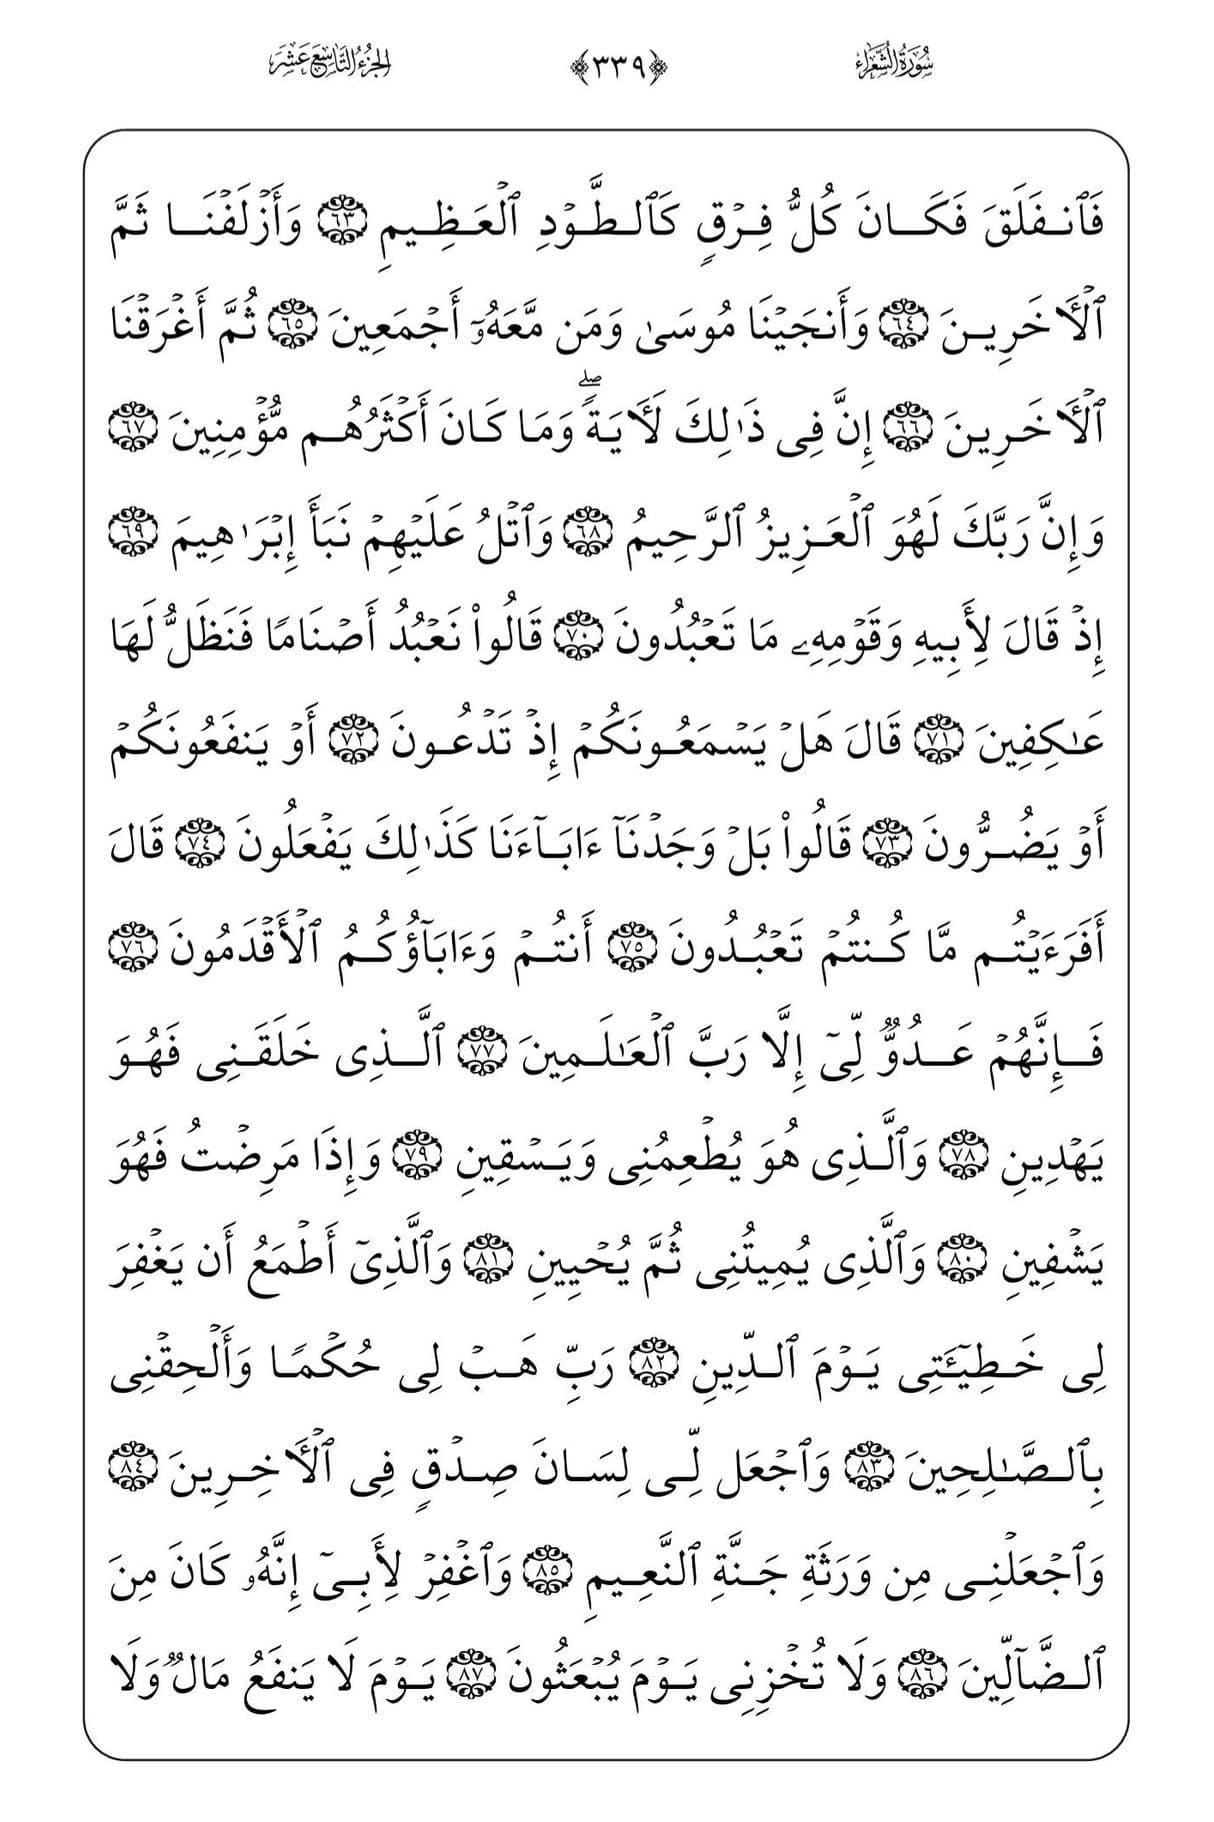 سُورَةُ الشُّعَرَاء ﴿٣٣٩﴾ الجُزْءُ التَّاسِعَ عَشَرَ
فَٱنفَلَقَ فَكَانَ كُلُّ فِرۡقٖ كَٱلطَّوۡدِ ٱلۡعَظِيمِ ٦٣ وَأَزۡلَفۡنَا ثَمَّ
ٱلۡأٓخَرِينَ ٦٤ وَأَنجَيۡنَا مُوسَىٰ وَمَن مَّعَهُۥٓ أَجۡمَعِينَ ٦٥ ثُمَّ أَغۡرَقۡنَا
ٱلۡأٓخَرِينَ ٦٦ إِنَّ فِي ذَٰلِكَ لَأٓيَةٗۖ وَمَا كَانَ أَكۡثَرُهُم مُّؤۡمِنِينَ ٦٧
وَإِنَّ رَبَّكَ لَهُوَ ٱلۡعَزِيزُ ٱلرَّحِيمُ ٦٨ وَٱتۡلُ عَلَيۡهِمۡ نَبَأَ إِبۡرَٰهِيمَ ٦٩
إِذۡ قَالَ لِأَبِيهِ وَقَوۡمِهِۦ مَا تَعۡبُدُونَ ٧٠ قَالُواْ نَعۡبُدُ أَصۡنَامٗا فَنَظَلُّ لَهَا
عَٰكِفِينَ ٧١ قَالَ هَلۡ يَسۡمَعُونَكُمۡ إِذۡ تَدۡعُونَ ٧٢ أَوۡ يَنفَعُونَكُمۡ
أَوۡ يَضُرُّونَ ٧٣ قَالُواْ بَلۡ وَجَدۡنَآ ءَابَآءَنَا كَذَٰلِكَ يَفۡعَلُونَ ٧٤ قَالَ
أَفَرَءَيۡتُم مَّا كُنتُمۡ تَعۡبُدُونَ ٧٥ أَنتُمۡ وَءَابَآؤُكُمُ ٱلۡأَقۡدَمُونَ ٧٦
فَإِنَّهُمۡ عَدُوّٞ لِّيٓ إِلَّا رَبَّ ٱلۡعَٰلَمِينَ ٧٧ ٱلَّذِي خَلَقَنِي فَهُوَ
يَهۡدِينِ ٧٨ وَٱلَّذِي هُوَ يُطۡعِمُنِي وَيَسۡقِينِ ٧٩ وَإِذَا مَرِضۡتُ فَهُوَ
يَشۡفِينِ ٨٠ وَٱلَّذِي يُمِيتُنِي ثُمَّ يُحۡيِينِ ٨١ وَٱلَّذِيٓ أَطۡمَعُ أَن يَغۡفِرَ
لِي خَطِيٓـَٔتِي يَوۡمَ ٱلدِّينِ ٨٢ رَبِّ هَبۡ لِي حُكۡمٗا وَأَلۡحِقۡنِي
بِٱلصَّٰلِحِينَ ٨٣ وَٱجۡعَل لِّي لِسَانَ صِدۡقٖ فِي ٱلۡأٓخِرِينَ ٨٤
وَٱجۡعَلۡنِي مِن وَرَثَةِ جَنَّةِ ٱلنَّعِيمِ ٨٥ وَٱغۡفِرۡ لِأَبِيٓ إِنَّهُۥ كَانَ مِنَ
ٱلضَّآلِّينَ ٨٦ وَلَا تُخۡزِنِي يَوۡمَ يُبۡعَثُونَ ٨٧ يَوۡمَ لَا يَنفَعُ مَالٞ وَلَا